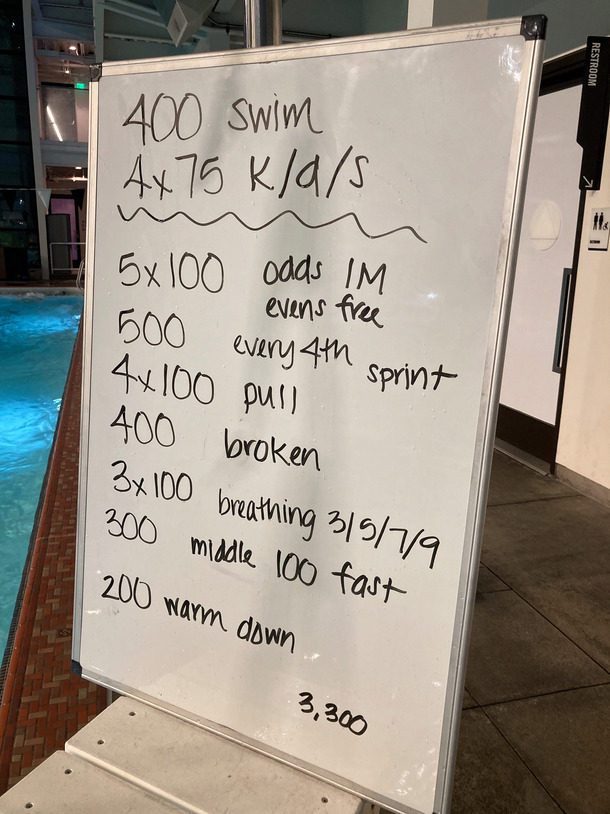 400 swim
4x75 K/d/s
5x100 odds IM
evens free
500 every 4th sprint
4x100 pull
400 broken
3x100 breathing 3/5/7/9
300 middle 100 fast
200 warm down
3,300
RESTROOM